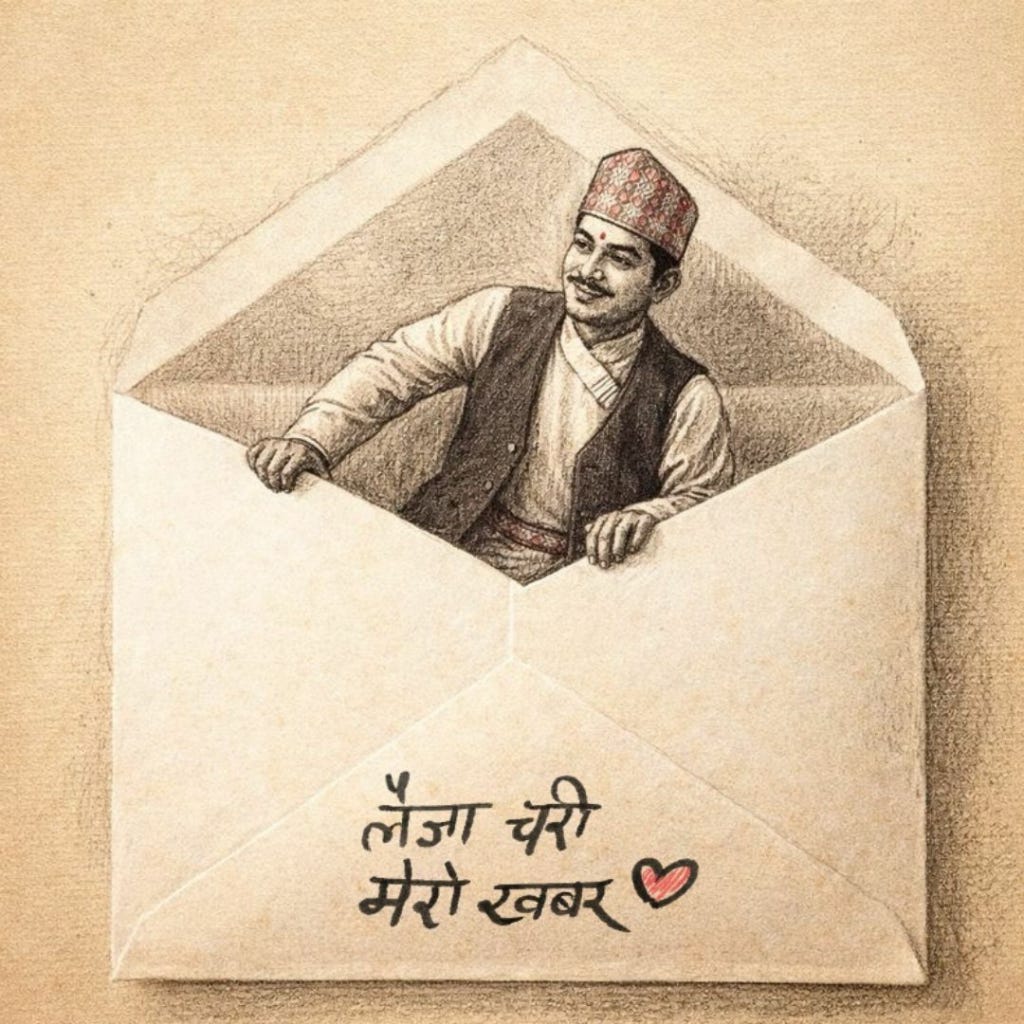 लैजा चरी
मेरो खबर